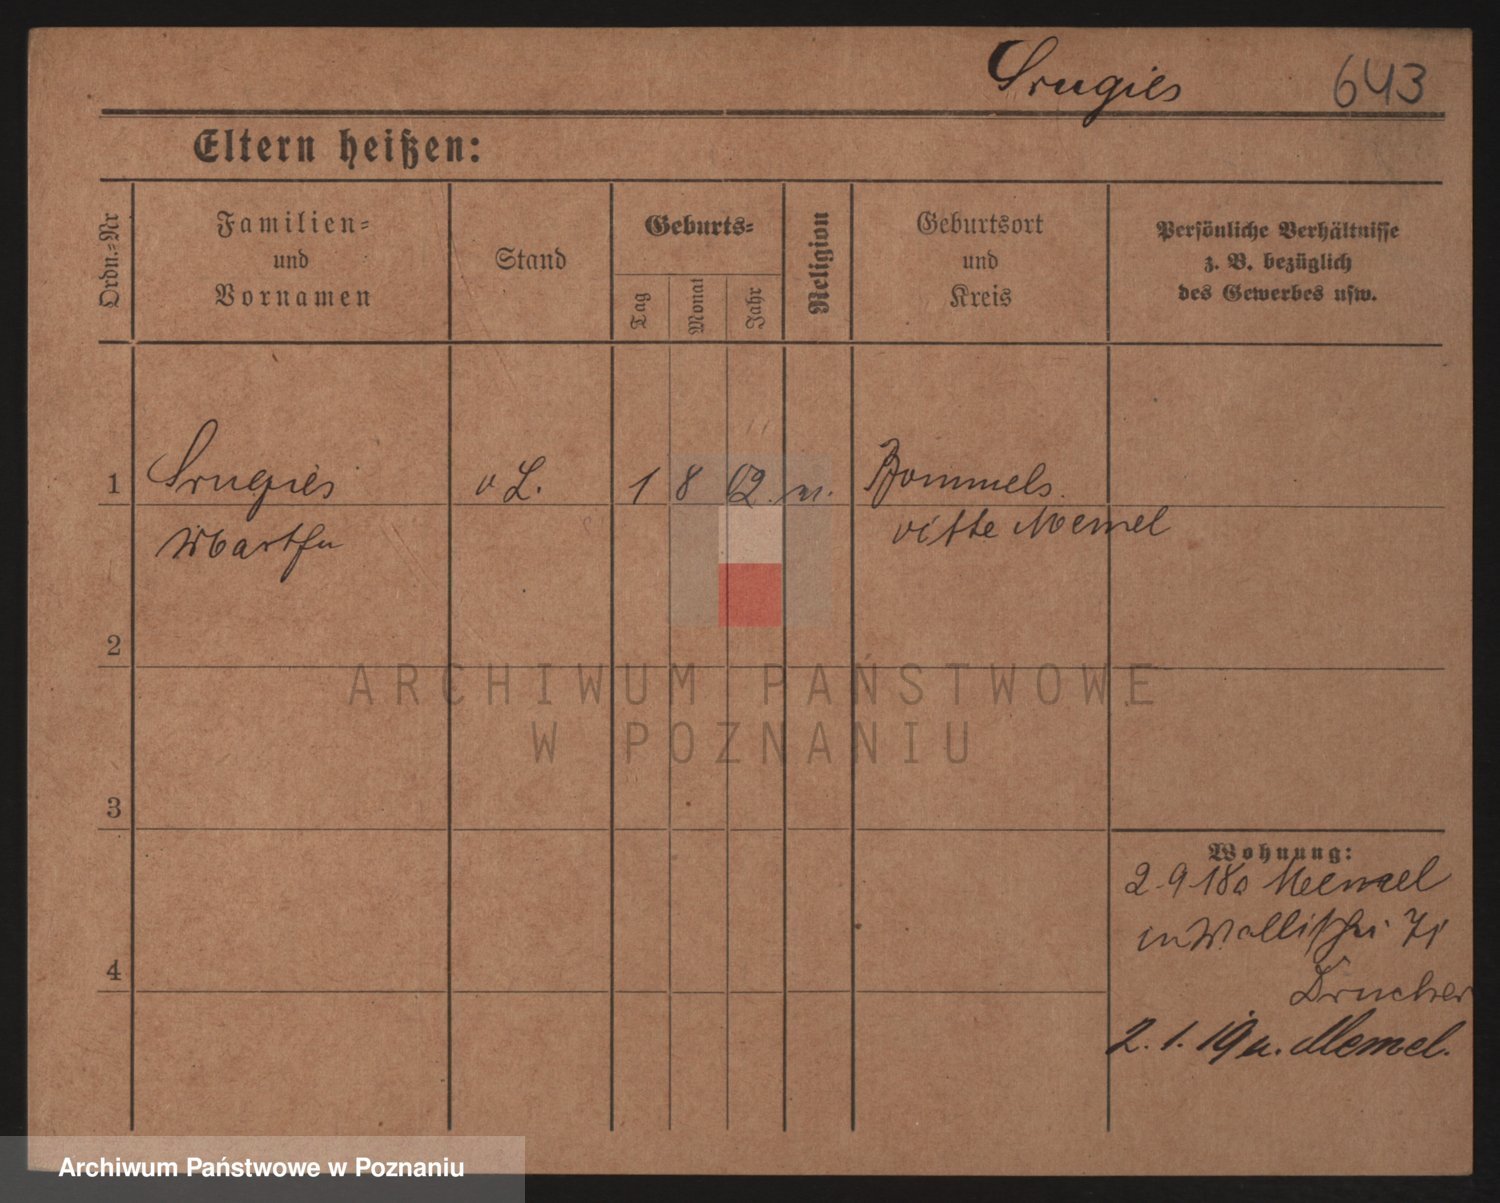 Srugies 643
Eltern heißen:
Ordn.-Nr
Familien-
und
Vornamen
Stand
Geburts-
Tag
Monat
Jahr
Religion
Geburtsort
und
Kreis
Persönliche Verhältnisse
z. B. bezüglich
des Gewerbes usw.
1 Srugies v L. 1 8 02 Bommels
Martha vitte Memel
2
ARCHIWUM PAŃSTWOWE
W POZNANIU
3
Wohnung:
2.9.18 Memel
Wallischei
4
Drucker
2.1.19 n. Memel.
Archiwum Państwowe w Poznaniu